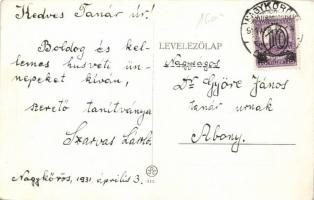 Kedves Tanár úr!
Boldog és kel-
lemes húsvéti ün-
nepeket kíván,
szerető tanítványa
Szarvas László
Nagykőrös, 1931. április 3.
LEVELEZŐLAP
NAGYKŐRÖS
10
Nagyságos
Dr Györe János
tanár urnak
Abony.